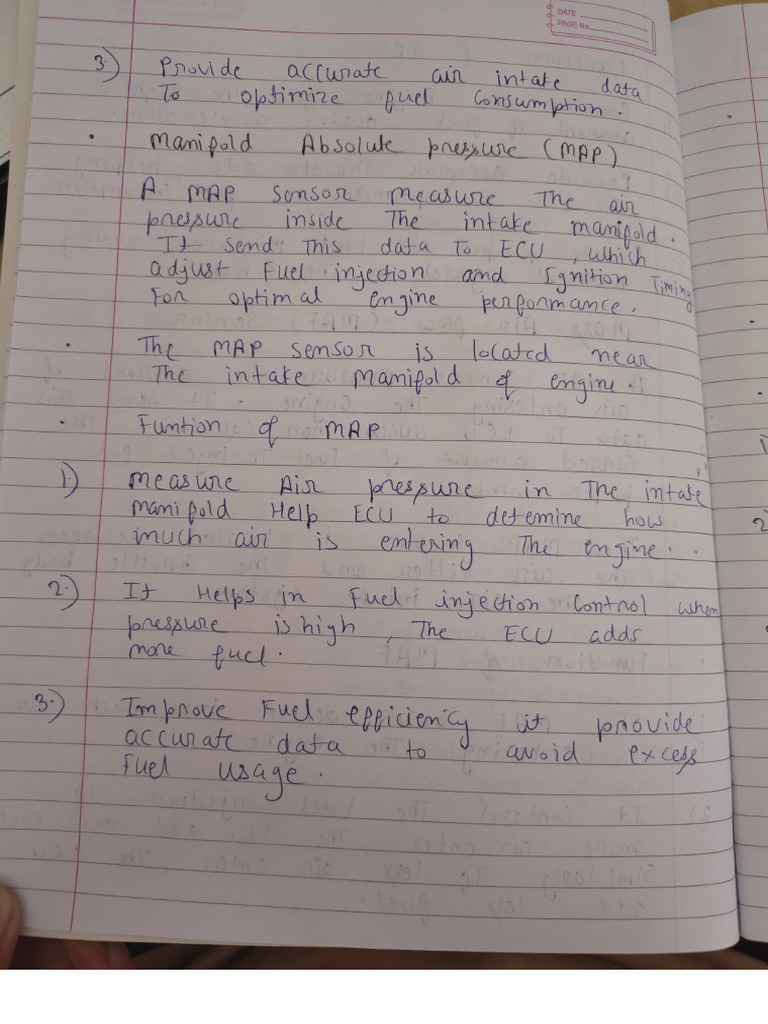 DATE
PAGE No.
3.) Provide accurate air intake data
To optimize fuel consumption.
• Manifold Absolute pressure (MAP)
A MAP sensor measure The air
pressure inside The intake manifold.
It send This data To ECU, which
adjust Fuel injection and Ignition Timing
For optimal engine performance.
• The MAP sensor is located near
The intake manifold of engine.
• Funtion of MAP
1.) measure Air pressure in The intake
manifold Help ECU to detemine how
much air is entering The engine.
2.) It Helps in Fuel injection control when
pressure is high, The ECU adds
more fuel.
3.) Improve Fuel efficiency it provide
accurate data to avoid excess
Fuel usage.
2